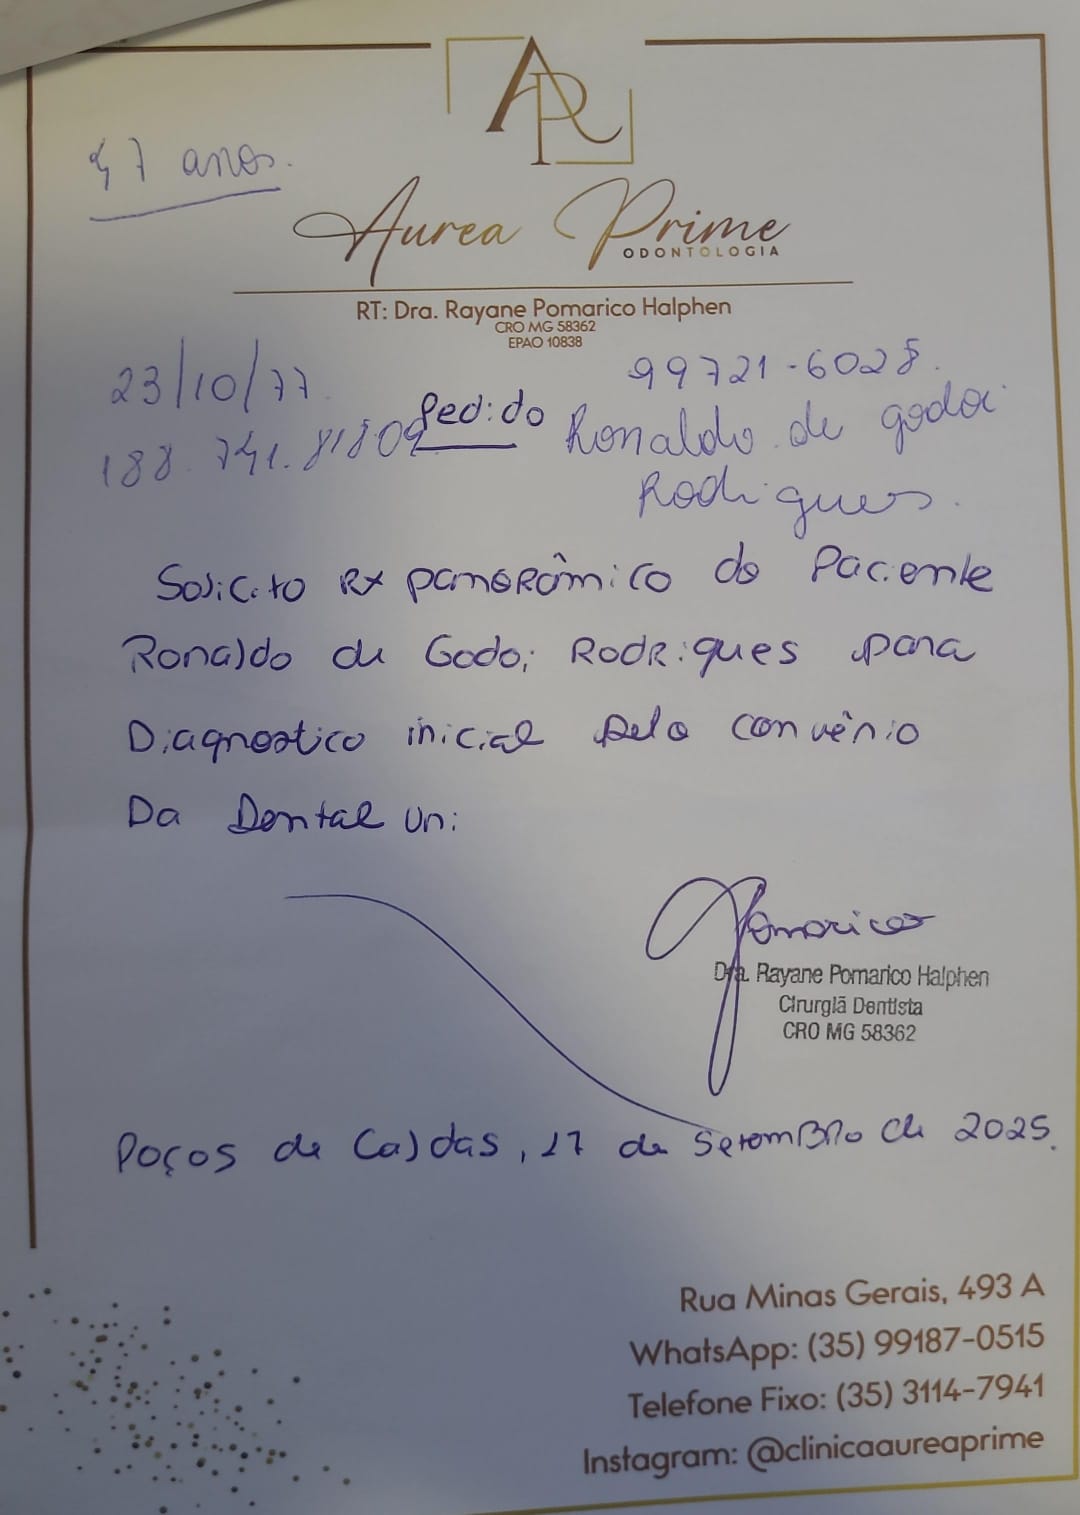 47 anos.
AP
Aurea Prime
ODONTOLOGIA
RT: Dra. Rayane Pomarico Halphen
CRO MG 58362
EPAO 10838
23/10/77
99721-6028.
188.741.81809
Pedido
Ronaldo de godoi
Rodrigues.
Solicito RX panorâmico do Paciente
Ronaldo de Godoi Rodrigues para
Diagnostico inicial pelo convênio
Da Dental Uni
Pomarico
Dra. Rayane Pomarico Halphen
Cirurgiã Dentista
CRO MG 58362
Poços de Caldas, 17 de Setembro de 2025.
Rua Minas Gerais, 493 A
WhatsApp: (35) 99187-0515
Telefone Fixo: (35) 3114-7941
Instagram: @clinicaaureaprime